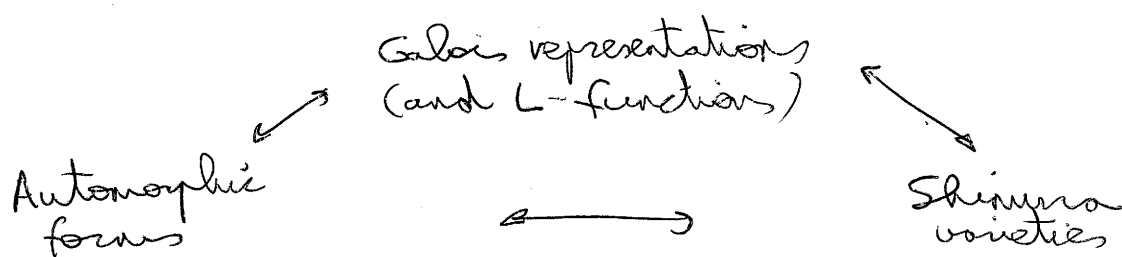 Galois representations
(and L-functions)
Automorphic
forms
Shimura
varieties